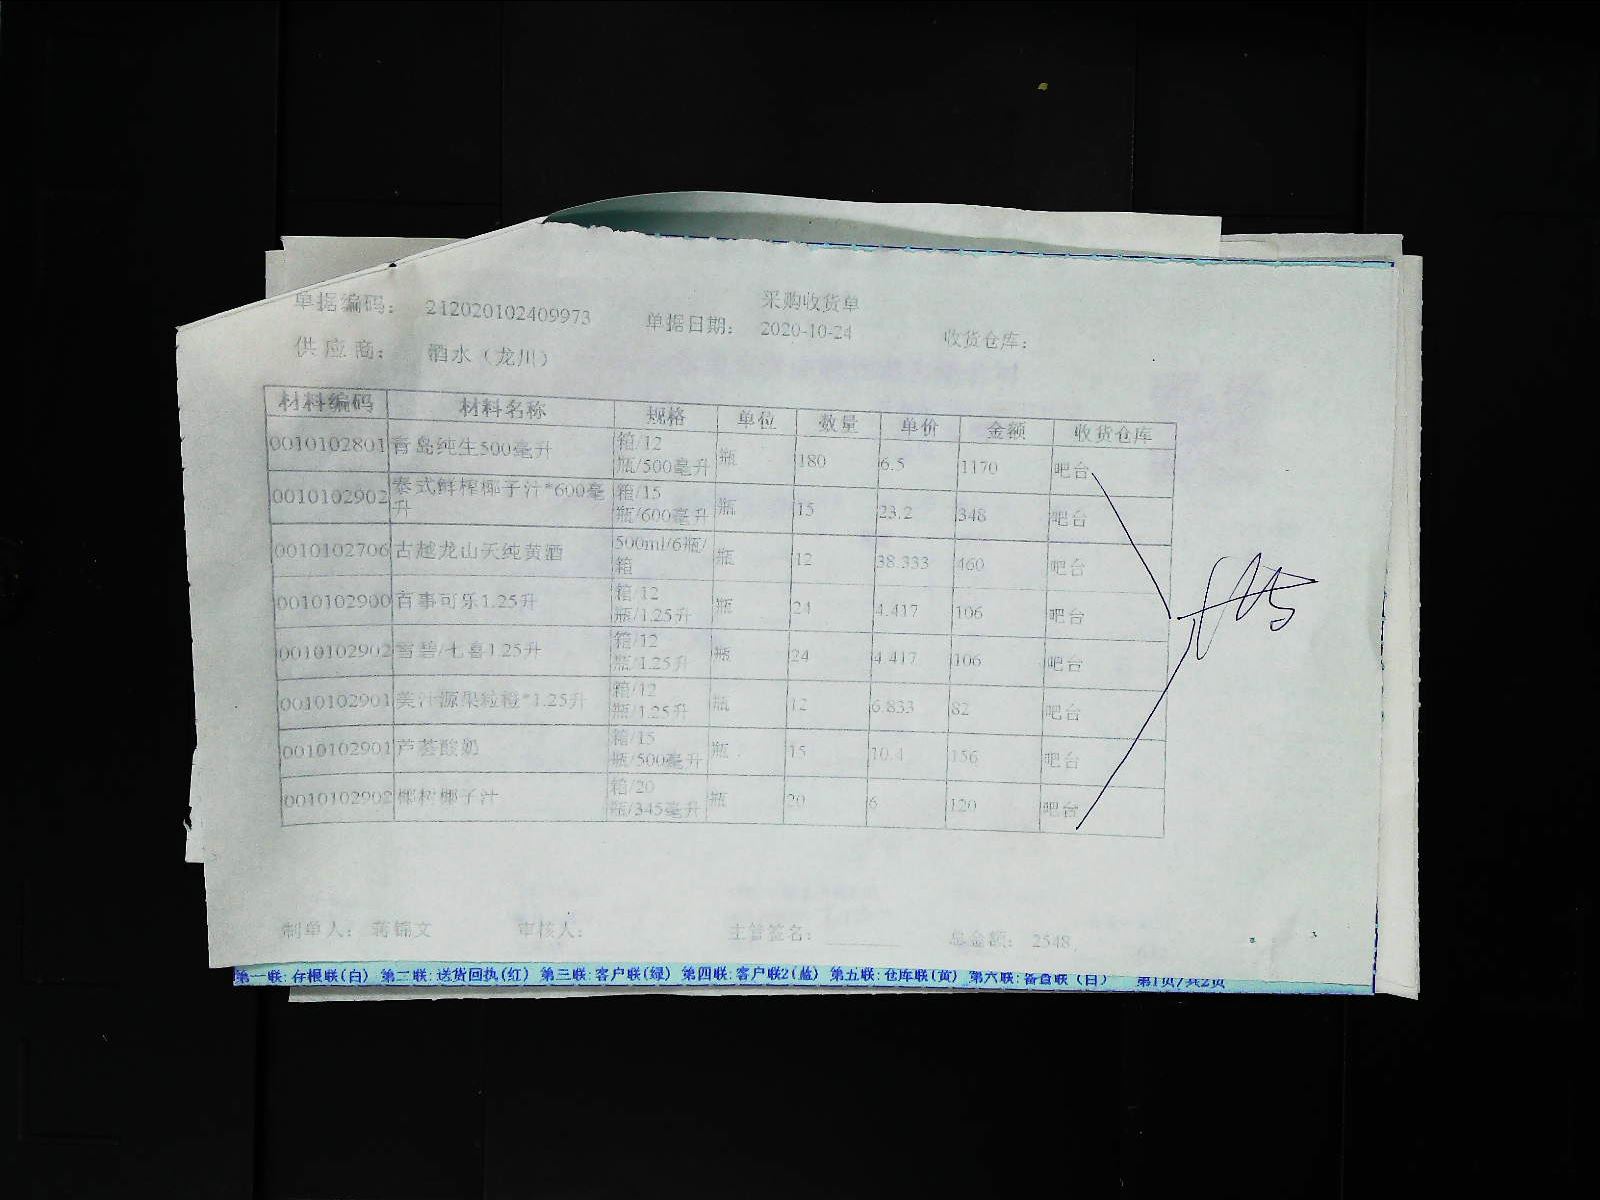 采购收货单
单据编码： 212020102409973 单据日期： 2020-10-24 收货仓库：
供应商： 酒水（龙川）
材料编码 材料名称 规格 单位 数量 单价 金额 收货仓库
0010102801 青岛纯生500毫升 箱/12瓶/500毫升 瓶 180 6.5 1170 吧台
0010102902 泰式鲜榨椰子汁*600毫升 箱/15瓶/600毫升 瓶 15 23.2 348 吧台
0010102706 古越龙山天纯黄酒 500ml/6瓶/箱 瓶 12 38.333 460 吧台
0010102900 百事可乐1.25升 箱/12瓶/1.25升 瓶 24 4.417 106 吧台
0010102902 雪碧/七喜1.25升 箱/12瓶/1.25升 瓶 24 4.417 106 吧台
0010102901 美汁源果粒橙*1.25升 箱/12瓶/1.25升 瓶 12 6.833 82 吧台
0010102901 芦荟酸奶 箱/15瓶/500毫升 瓶 15 10.4 156 吧台
0010102902 椰树椰子汁 箱/20瓶/345毫升 瓶 20 6 120 吧台
制单人： 蒋锦文 审核人： 主管签名： 总金额： 2548
第一联:存根联(白) 第二联:送货回执(红) 第三联:客户联(绿) 第四联:客户联2(蓝) 第五联:仓库联(黄) 第六联:备查联(白) 第1页/共2页